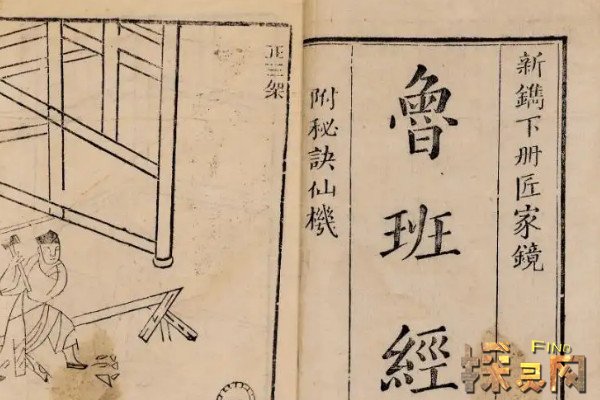 新鐫下册匠家鏡
魯班經
附秘訣仙機
正三架
FIND
探灵网